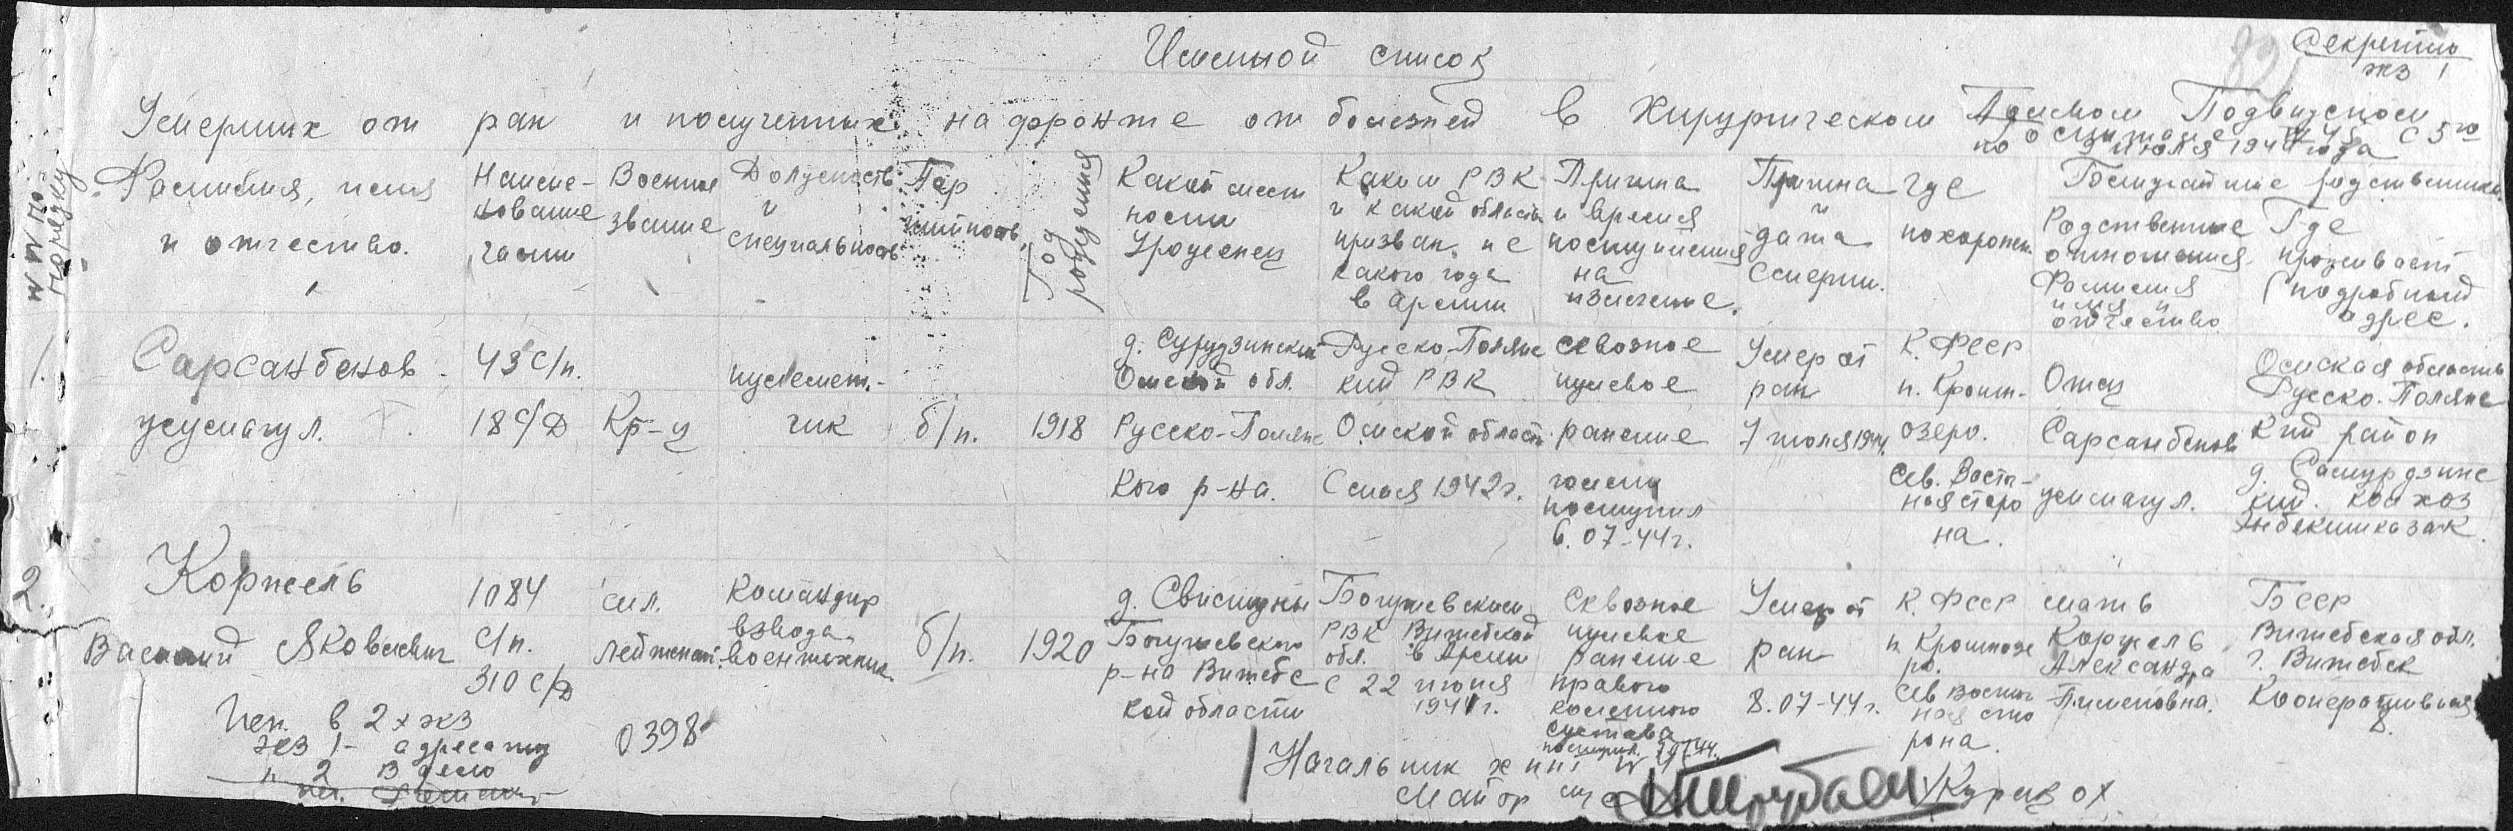 Секретно
экз 1
82
Именной список
Умерших от ран и полученных на фронте от болезней в Хирургическом Подвижном
по 5 июля 1944 года
№№ по порядку
Фамилия, имя и отчество.
Наиме-
нование
части
Военное
звание
Должность
и
специальность
Пар
тийность
Год рождения
Какой мест
ности
Уроженец
Каким РВК
и какой области
призван, и с
какого года
в армии
Причина
и время
поступления
на
излечение.
Причина
и
дата
смерти.
Где
похоронен
Ближайшие родственники
Родственные
отношения
Фамилия
имя и
отчество
Где
проживает
(подробный
адрес.
1.
Сарсанбенов
усумагул.
43 с/п.
18 с/д
Кр-ц
пулемет-
чик
б/п.
1918
Омской обл.
Русско-Полянс
кого р-на.
Русско-Полянс
кий РВК
Омской област
С мая 1942г.
сквозное
пулевое
ранение
голени
поступил
6.07-44г.
Умер от
ран
7 июля 1944г.
К. ФССР
п. Крошн-
озеро.
Сев. Восто-
ная сторо
на.
Отец
Сарсанбенов
усумагул.
Омская область
Русско-Полянс
кий район
колхоз
2.
Коржель
Василий Яковлевич
1084
с/п.
310 с/д
мл.
лейтенант.
командир
взвода
воентехник
б/п.
1920
д. Свистуны
Богушевского
р-на Витебс
кой области
Богушевским
РВК Витебской
обл. в Армии
с 22 июня
1941г.
сквозное
пулевое
ранение
правого
коленного
сустава
Умер от
ран
8.07-44г.
К. ФССР
п. Крошнозе
ро.
Сев Восточ
ная сто
рона.
мать
Коржель
Александра
Пименовна.
БССР
Витебская обл.
г. Витебск
Кооперативная
8.
Печ. в 2х экз
экз 1- адресату
" 2 в дело
0398
Начальник хппг
Майор м/с